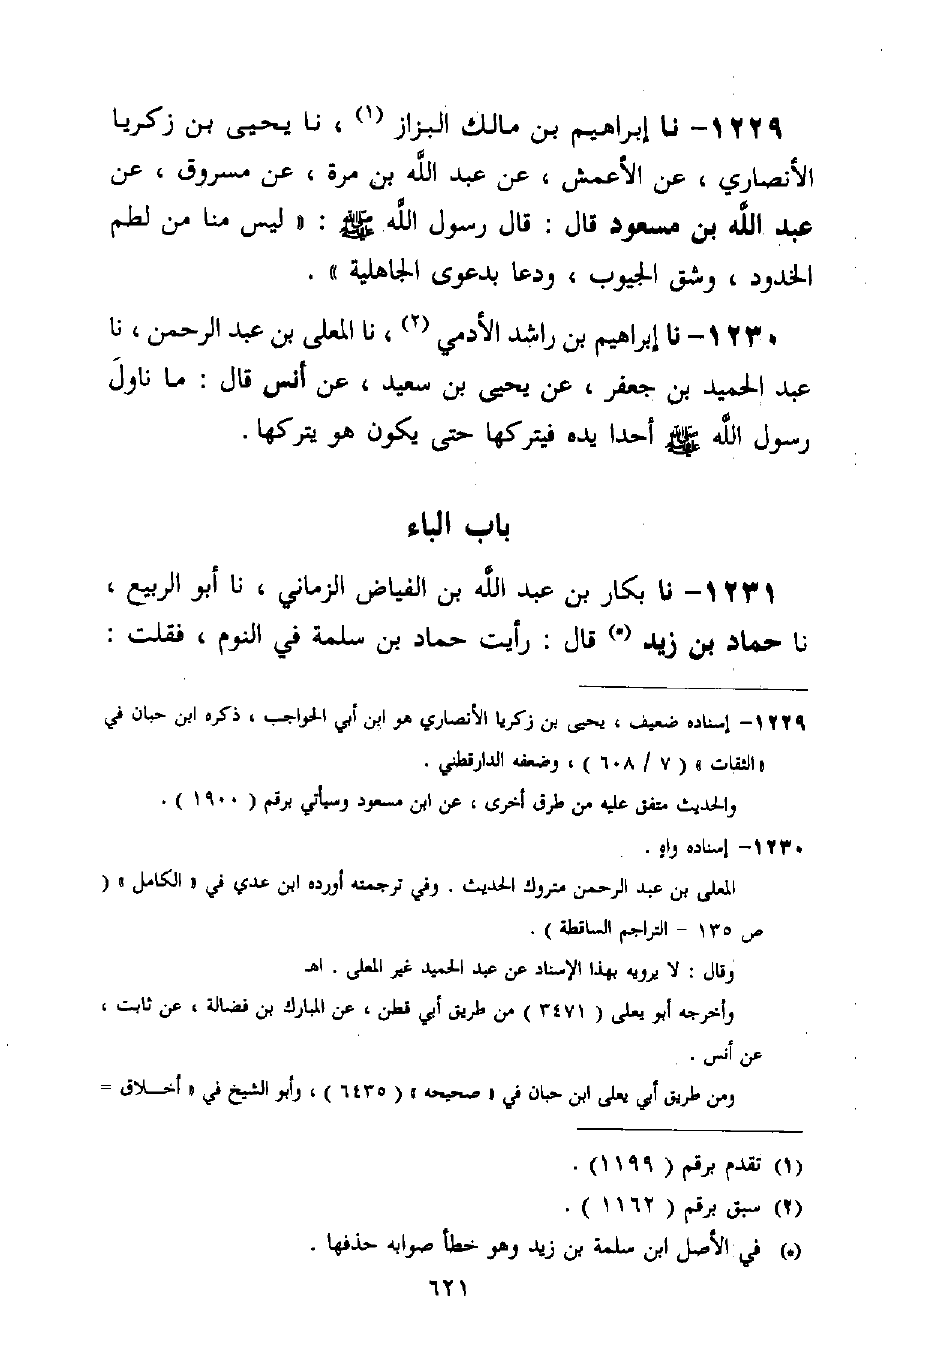 ١٢٢٩- نا إبراهيم بن مالك البزاز (١) ، نا يحيى بن زكريا
الأنصاري ، عن الأعمش ، عن عبد الله بن مرة ، عن مسروق ، عن
عبد الله بن مسعود قال : قال رسول الله ﷺ : « ليس منا من لطم
الخدود ، وشق الجيوب ، ودعا بدعوى الجاهلية » .
١٢٣٠- نا إبراهيم بن راشد الأدمي (٢) ، نا المعلى بن عبد الرحمن ، نا
عبد الحميد بن جعفر ، عن يحيى بن سعيد ، عن أنس قال : ما ناولَ
رسول الله ﷺ أحدا يده فيتركها حتى يكون هو يتركها .
باب الباء
١٢٣١- نا بكار بن عبد الله بن الفياض الزماني ، نا أبو الربيع ،
نا حماد بن زيد (*) قال : رأيت حماد بن سلمة في النوم ، فقلت :
١٢٢٩- إسناده ضعيف ، يحيى بن زكريا الأنصاري هو ابن أبي الحواجب ، ذكره ابن حبان في
« الثقات » ( ٧ / ٦٠٨ ) ، وضعفه الدارقطني .
والحديث متفق عليه من طرق أخرى ، عن ابن مسعود وسيأتي برقم ( ١٩٠٠ ) .
١٢٣٠- إسناده واهٍ .
المعلى بن عبد الرحمن متروك الحديث . وفي ترجمته أورده ابن عدي في « الكامل » (
ص ١٣٥ - التراجم الساقطة ) .
وقال : لا يرويه بهذا الإسناد عن عبد الحميد غير المعلى . اهـ
وأخرجه أبو يعلى ( ٣٤٧١ ) من طريق أبي قطن ، عن المبارك بن فضالة ، عن ثابت ،
عن أنس .
ومن طريق أبي يعلى ابن حبان في « صحيحه » ( ٦٤٣٥ ) ، وأبو الشيخ في « أخـلاق =
(١) تقدم برقم ( ١١٩٩) .
(٢) سبق برقم ( ١١٦٢ ) .
(*) في الأصل ابن سلمة بن زيد وهو خطأ صوابه حذفها .
٦٢١